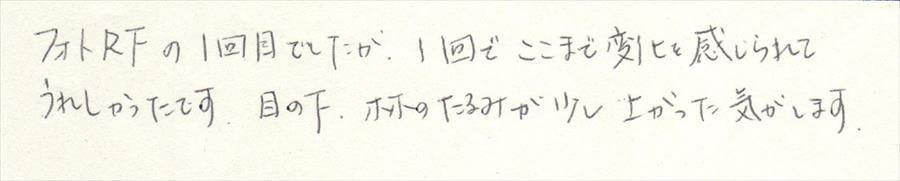 フォトRFの1回目でしたが、1回でここまで変化を感じられて
うれしかったです。目の下、ホホのたるみが少し上がった気がします。